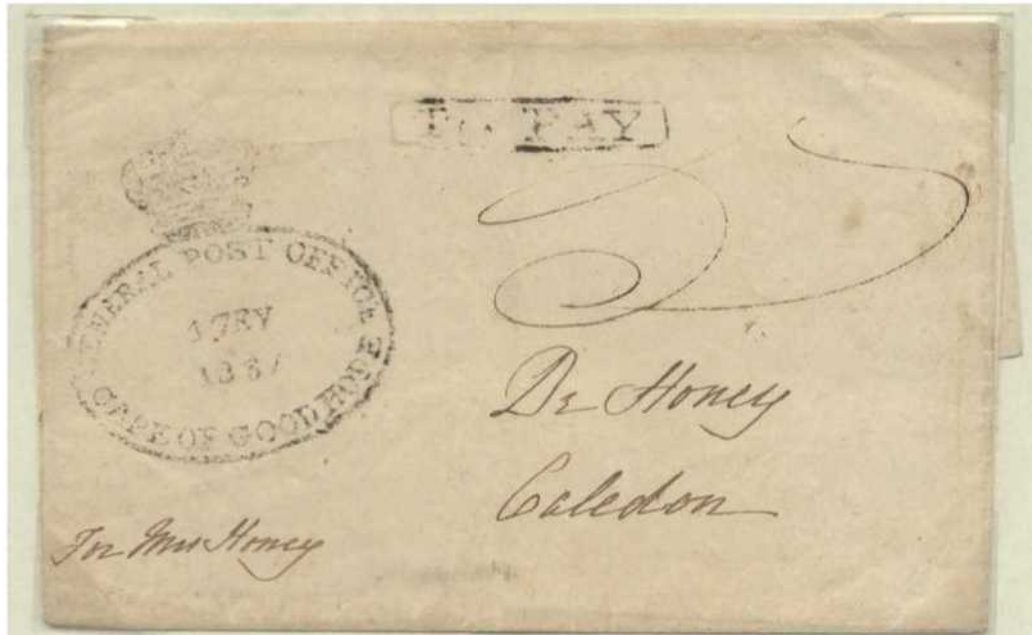 TO PAY
GENERAL POST OFFICE
CAPE OF GOOD HOPE
Dr Honey
Caledon
For Mrs Honey